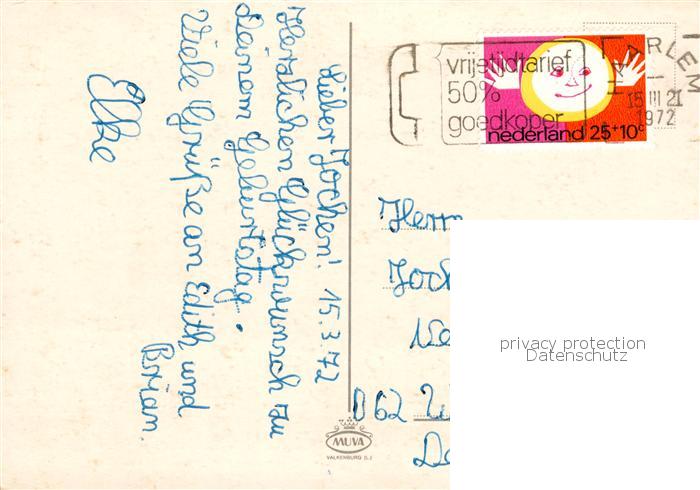 Lieber Jochen! 15.3.72
Herzlichen Glückwunsch zu
Deinem Geburtstag.
Viele Grüße an Edith und
Brian.
Elke
vrijetijdtarief
50%
goedkoper
HAARLEM
15 III 21
1972
nederland 25+10c
Herrn
Joch
D62
privacy protection
Datenschutz
MUVA
VALKENBURG (L.)